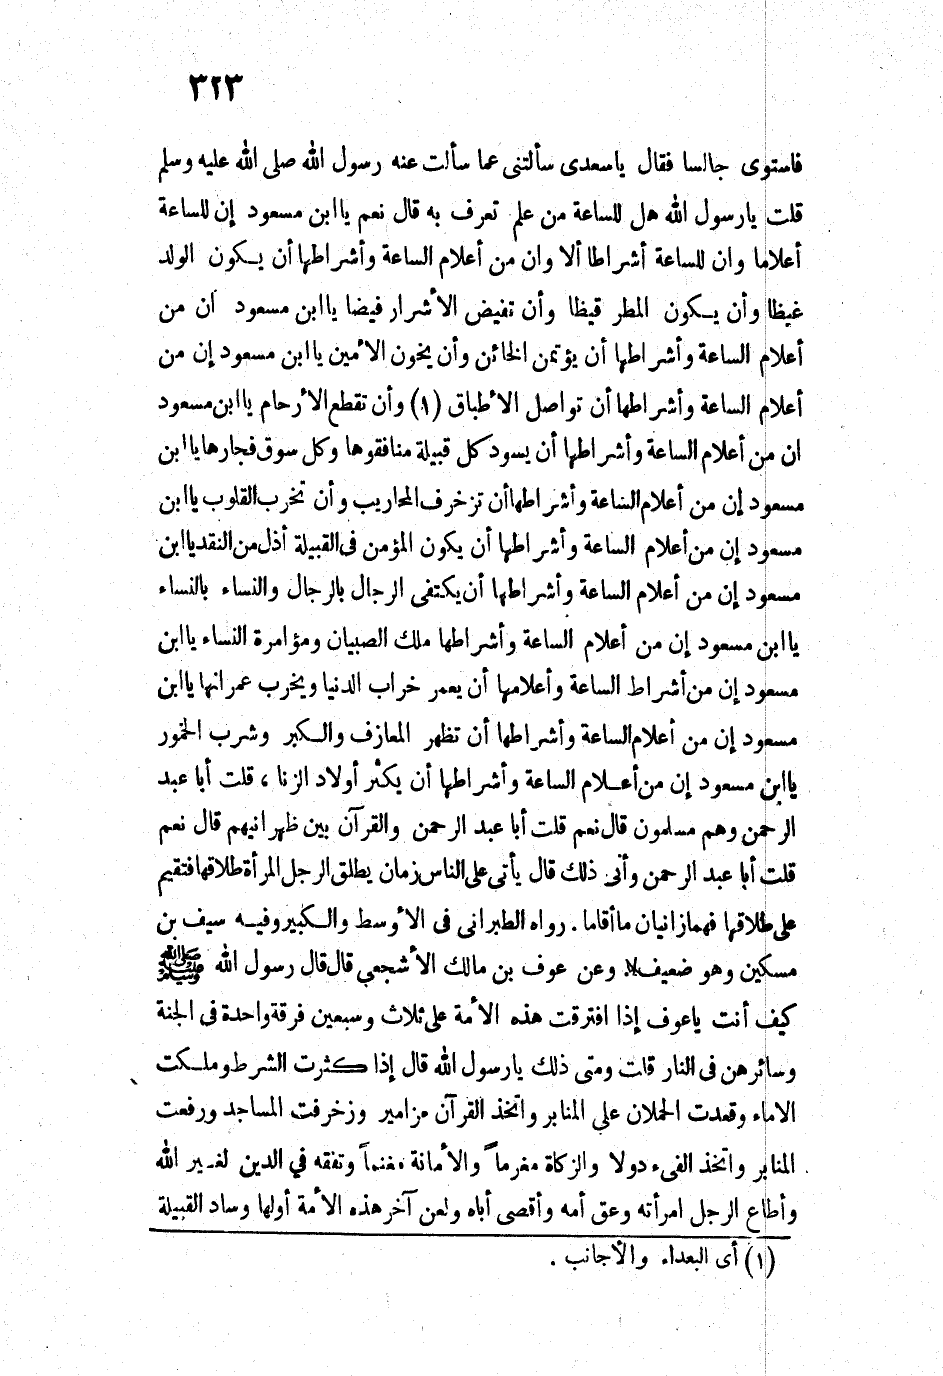 ٣٢٣
فاستوى جالسا فقال ياسعدى سألتنى عما سألت عنه رسول الله صلى الله عليه وسلم
قلت يارسول الله هل للساعة من علم تعرف به قال نعم يا ابن مسعود إن للساعة
أعلاما وان للساعة أشراطا ألا وان من أعلام الساعة وأشراطها أن يكون الولد
غيظا وأن يكون المطر قيظا وأن تفيض الأشرار فيضا يا ابن مسعود ان من
أعلام الساعة وأشراطها أن يؤتمن الخائن وأن يخون الأمين يا ابن مسعود إن من
أعلام الساعة وأشراطها أن تواصل الأطباق (١) وأن تقطع الأرحام يا ابن مسعود
ان من أعلام الساعة وأشراطها أن يسود كل قبيلة منافقوها وكل سوق فجارها يا ابن
مسعود إن من أعلام الساعة وأشراطها أن تزخرف المحاريب وأن تخرب القلوب يا ابن
مسعود إن من أعلام الساعة وأشراطها أن يكون المؤمن فى القبيلة أذل من النقد يا ابن
مسعود إن من أعلام الساعة وأشراطها أن يكتفى الرجال بالرجال والنساء بالنساء
يا ابن مسعود إن من أعلام الساعة وأشراطها ملك الصبيان ومؤامرة النساء يا ابن
مسعود إن من أشراط الساعة وأعلامها أن يعمر خراب الدنيا ويخرب عمرانها يا ابن
مسعود إن من أعلام الساعة وأشراطها أن تظهر المعازف والكبر وشرب الخمور
يا ابن مسعود إن من أعلام الساعة وأشراطها أن يكثر أولاد الزنا ، قلت أبا عبد
الرحمن وهم مسلمون قال نعم قلت أبا عبد الرحمن والقرآن بين ظهرانيهم قال نعم
قلت أبا عبد الرحمن وأنى ذلك قال يأتى على الناس زمان يطلق الرجل المرأة طلاقها فتقيم
على طلاقها فهما زانيان ما أقاما . رواه الطبرانى فى الأوسط والكبير وفيه سيف بن
مسكين وهو ضعيف . وعن عوف بن مالك الأشجعي قال قال رسول الله ﷺ
كيف أنت ياعوف إذا افترقت هذه الأمة على ثلاث وسبعين فرقة واحدة فى الجنة
وسائرهن فى النار قلت ومتى ذلك يارسول الله قال إذا كثرت الشرط وملكت
الاماء وقعدت الحملان على المنابر واتخذ القرآن مزامير وزخرفت المساجد ورفعت
المنابر واتخذ الفىء دولا والزكاة مغرماً والأمانة مغنماً وتفقه في الدين لغير الله
وأطاع الرجل امرأته وعق أمه وأقصى أباه ولعن آخر هذه الأمة أولها وساد القبيلة
(١) أى البعداء والأجانب .